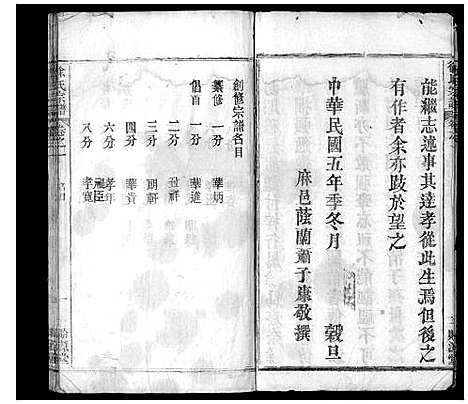 能繼志述事其達孝從此生焉但後之
有作者余亦跂於望之
中華民國五年季冬月 穀旦
麻邑蔭蘭蕭子康敬撰
創修宗譜名目
纂修 一分 華炳
倡首 一分 華道
二分
三分 朗軒
四分 華貴
六分 孝年
八分 孝寬
徐氏宗譜